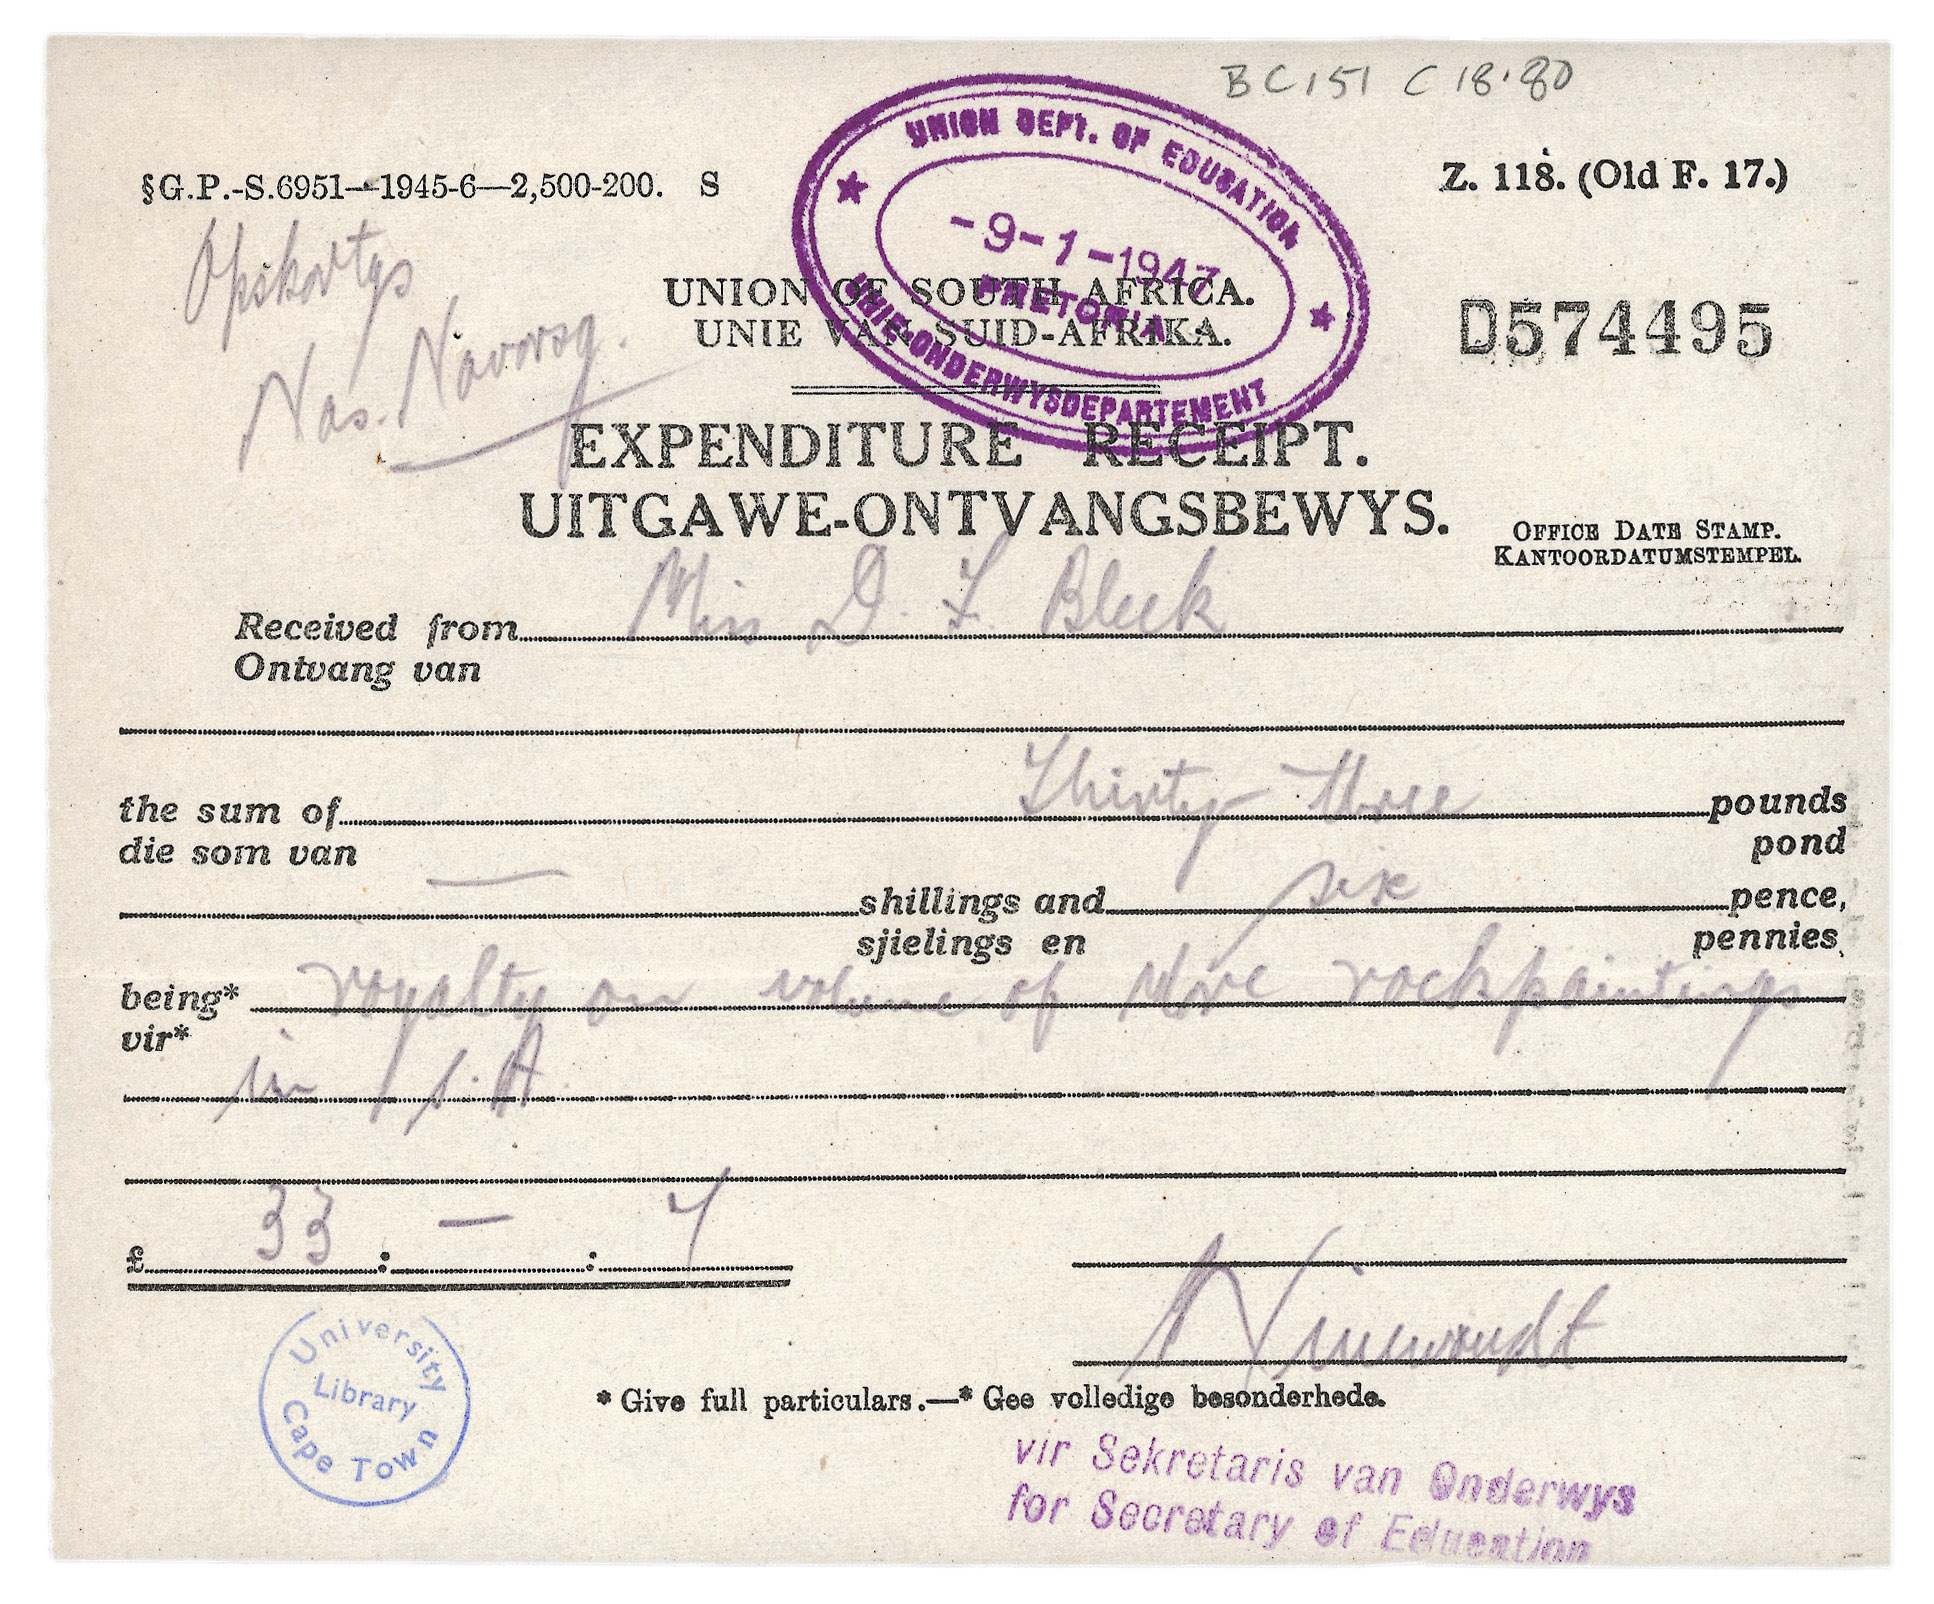 BC151 C18.80
UNION DEPT. OF EDUCATION
-9-1-1947
PRETORIA
UNIE-ONDERWYSDEPARTEMENT
§G.P.-S.6951—1945-6—2,500-200. S
Z. 118. (Old F. 17.)
Opskortgs
Nas. Navorsg.
UNION OF SOUTH AFRICA.
UNIE VAN SUID-AFRIKA.
D574495
EXPENDITURE RECEIPT.
UITGAWE-ONTVANGSBEWYS.
OFFICE DATE STAMP.
KANTOORDATUMSTEMPEL.
Received from Miss D. F. Bleek
Ontvang van
the sum of Thirty three pounds
die som van pond
— shillings and six pence,
sjielings en pennies
being* royalty on volume of More rockpaintings
vir*
in S.A.
£ 33 : — :
* Give full particulars.—* Gee volledige besonderhede.
University
Library
Cape Town
vir Sekretaris van Onderwys
for Secretary of Education